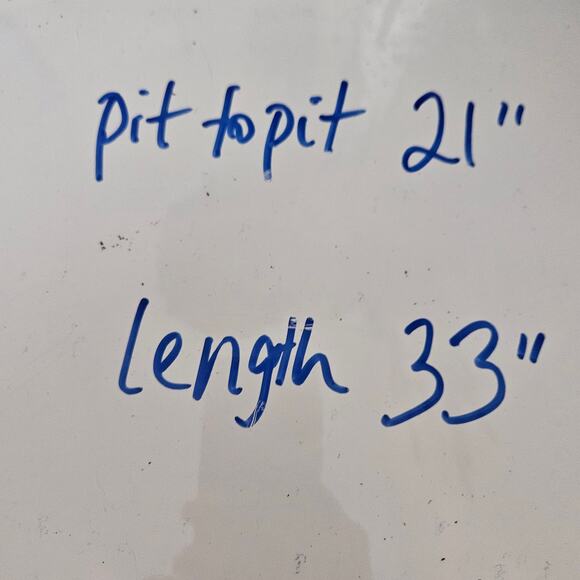 pit to pit 21"
length 33"